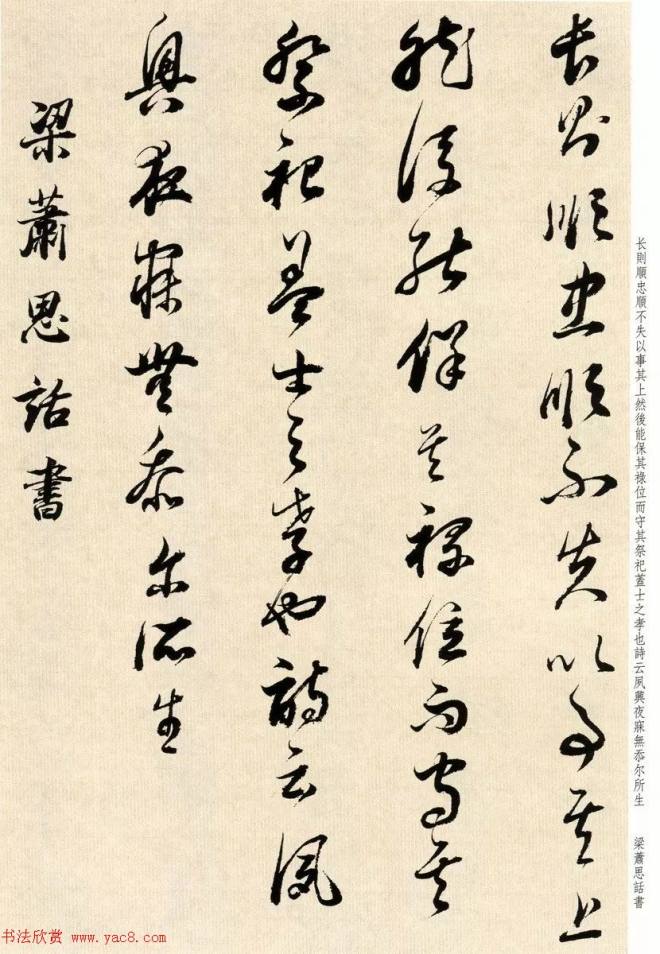 长則順忠順不失以事其上
然後能保其祿位而守其
祭祀蓋士之孝也詩云夙
興夜寐無忝尔所生
梁蕭思話書
长則順忠順不失以事其上然後能保其祿位而守其祭祀蓋士之孝也詩云夙興夜寐無忝尔所生 梁蕭思話書
书法欣赏 www.yac8.com